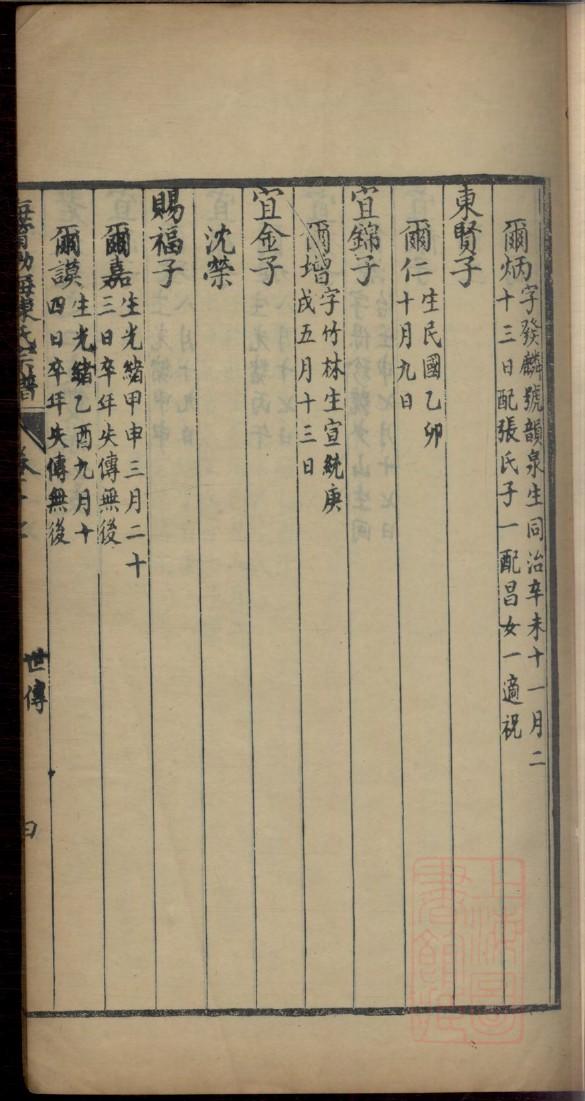 爾炳字發麟號韻泉生同治辛未十一月二
十三日配張氏子一配昌女一適祝
東賢子
爾仁生民國乙卯
十月九日
宜錦子
爾增字竹林生宣統庚
戌五月十三日
宜金子
沈榮
賜福子
爾嘉生光緒甲申三月二十
三日卒年失傳無後
爾謨生光緒乙酉九月十
四日卒年失傳無後
陳氏宗譜
世傳
上海圖書館藏